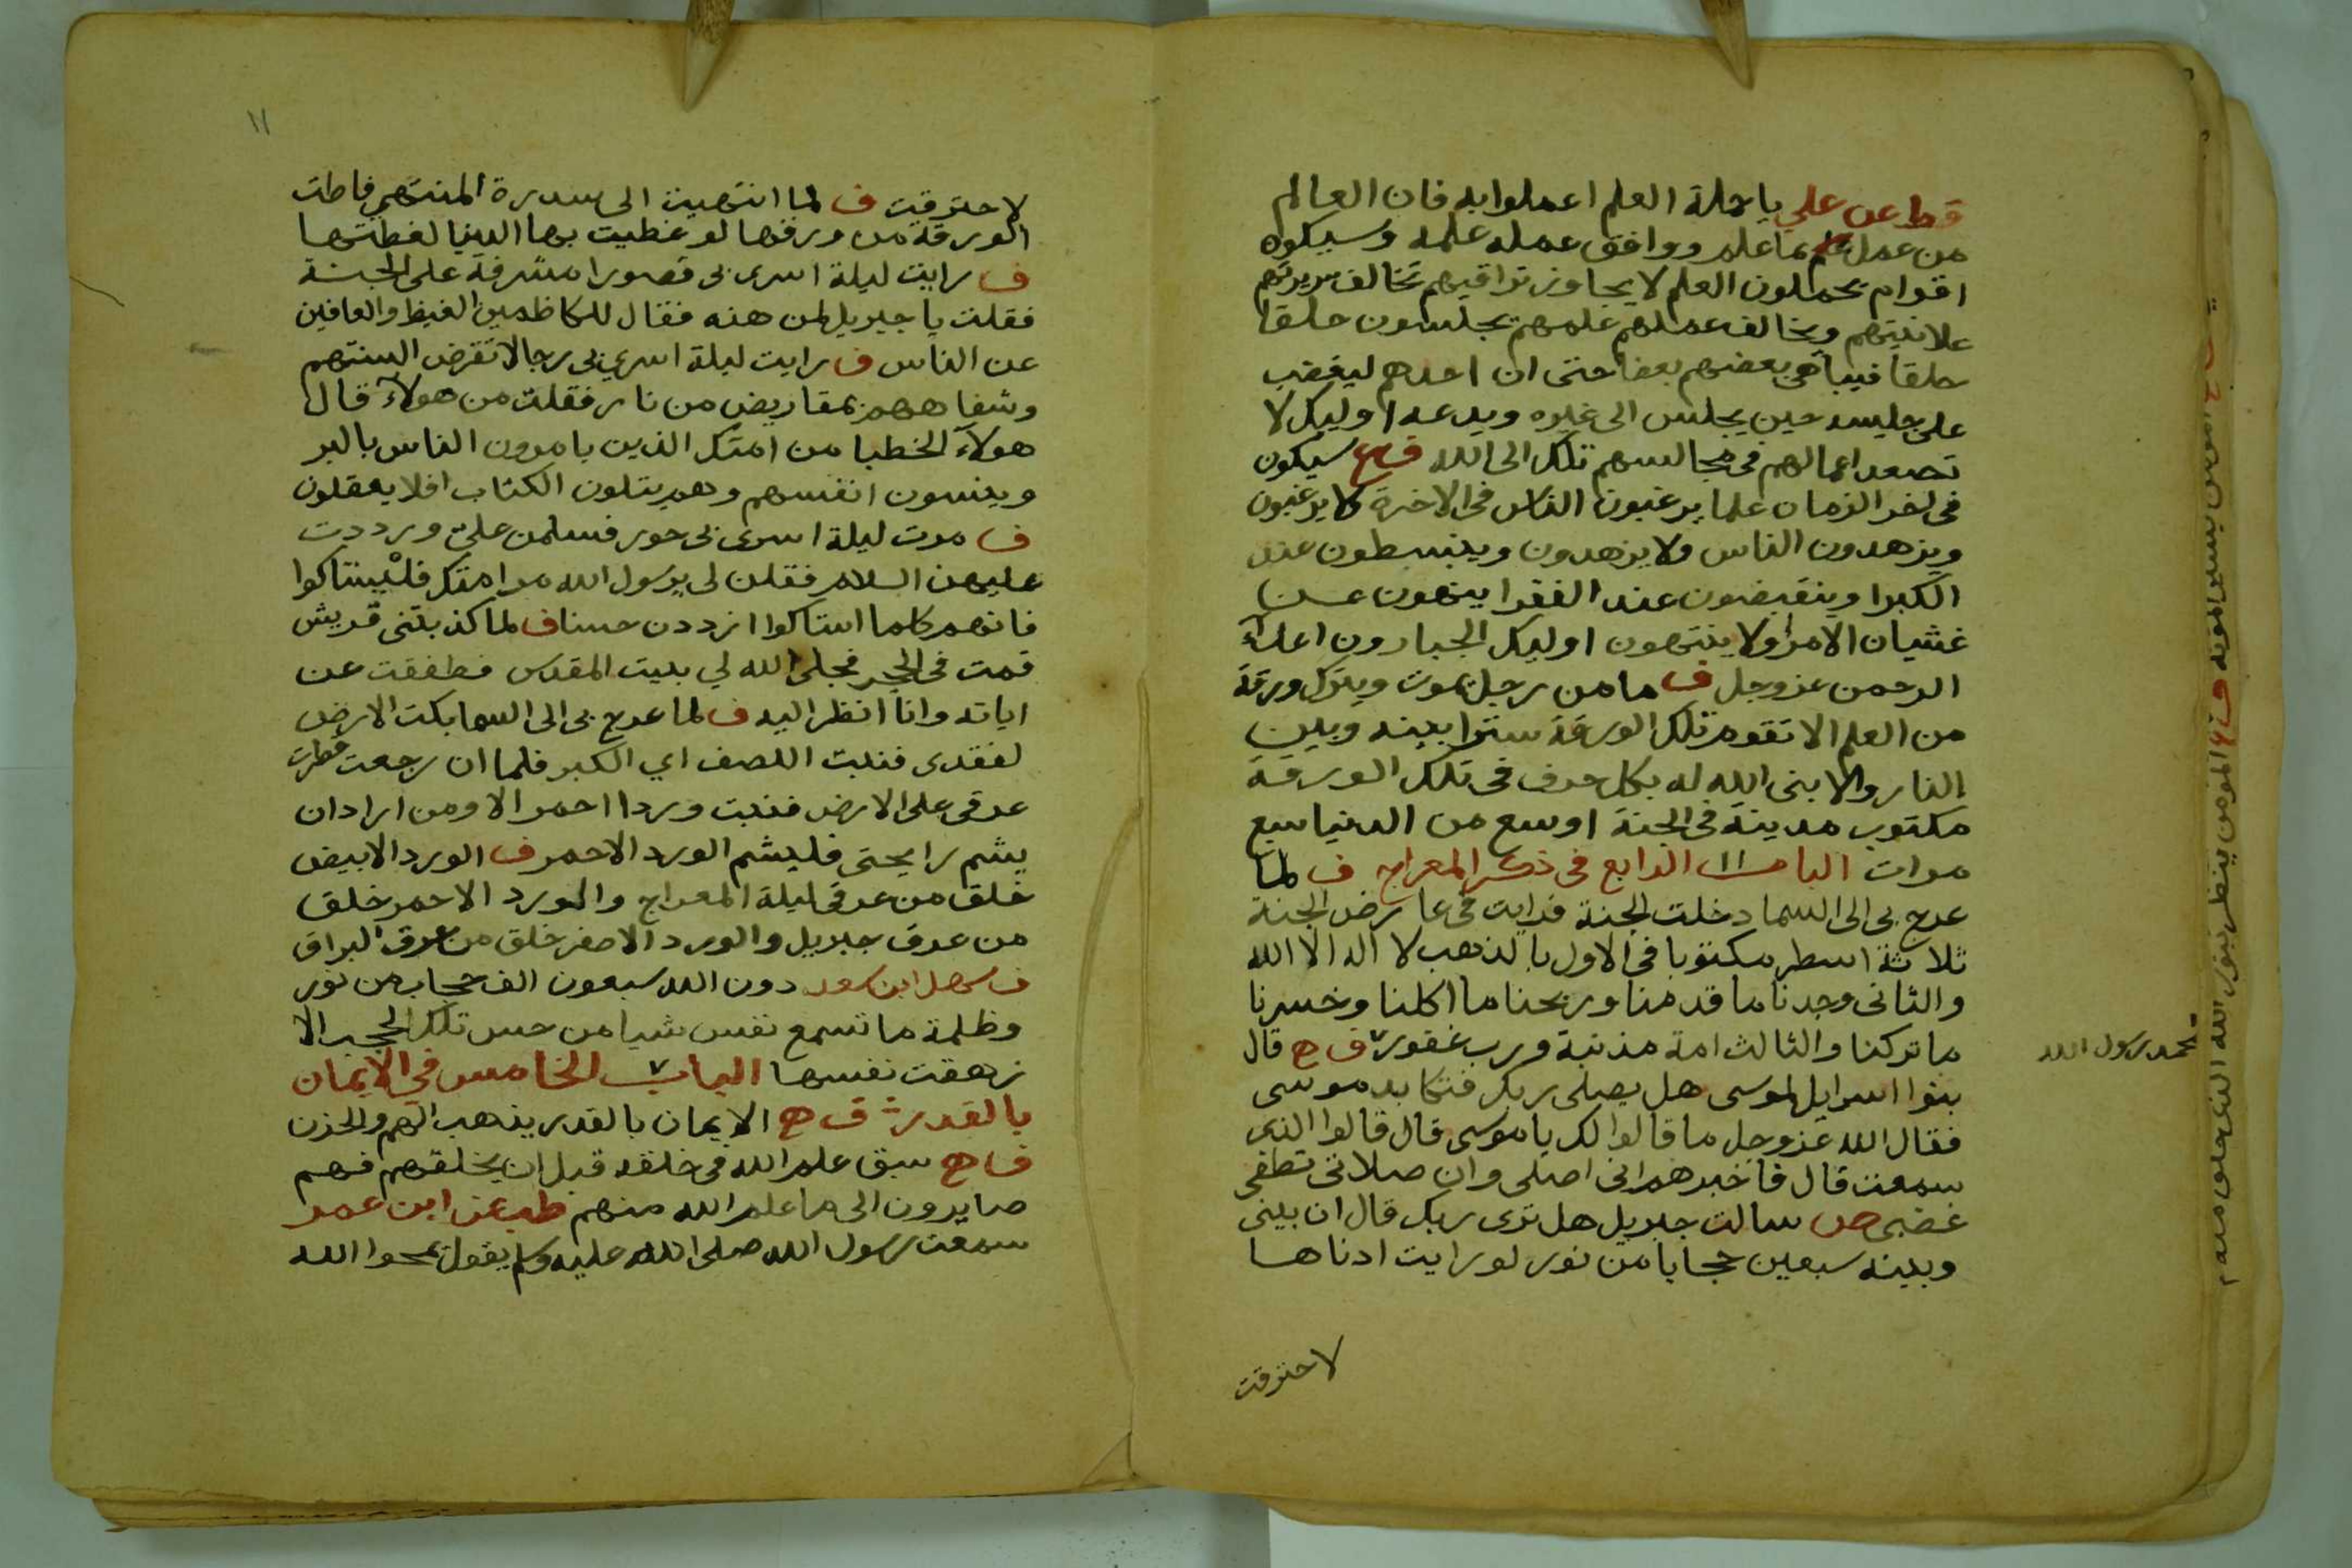 قط عن علي يا حملة العلم اعملوا به فان العالم
من عمل بما علم ووافق عمله علمه وسيكون
اقوام يحملون العلم لا يجاوز تراقيهم تخالف سريرتهم
علانيتهم ويخالف عملهم علمهم يجلسون حلقا
حلقا فيباهي بعضهم بعضا حتى ان احدهم ليغضب
على جليسه حين يجلس الى غيره ويدعه اوليك لا
تصعد اعمالهم في مجالسهم تلك الى الله سيكون
في اخر الزمان علما يرغبون الناس في الاخرة ولا يرغبون
ويزهدون الناس ولا يزهدون وينبسطون عند
الكبرا وينقبضون عند الفقرا ينهون عن
غشيان الامرا ولا ينتهون اوليك الجبارون اعداء
الرحمن عز وجل ف ما من رجل يموت ويترك ورقة
من العلم الا تقوم تلك الورقة سترا بينه وبين
النار والا بنى الله له بكل حرف في تلك الورقة
مكتوب مدينة في الجنة اوسع من الدنيا سبع
مرات الباب الرابع في ذكر المعراج ف لما
عرج بي الى السما دخلت الجنة فرايت في عارض الجنة
ثلاثة اسطر مكتوبا في الاول بالذهب لا اله الا الله
والثاني وجدنا ما قدمنا وربحنا ما اكلنا وخسرنا
ما تركنا والثالث امة مذنبة ورب غفور ف ج قال
محمد رسول الله
بنوا اسرايل لموسى هل يصلي ربك فتكابد موسى
فقال الله عز وجل ما قالوا لك يا موسى قال قالوا الذي
سمعت قال فاخبرهم اني اصلي وان صلاتي تطفي
غضبي ص سالت جبريل هل ترى ربك قال ان بيني
وبينه سبعين حجابا من نور لو رايت ادناها
لاحترقت
المومن ينظر بنور الله الذي خلق منه
١١
لاحترقت ف لما انتهيت الى سدرة المنتهى
الورقة من ورقها لو غطيت بها الدنيا لغطتها
ف رايت ليلة اسرى بي قصورا مشرفة على الجنة
فقلت يا جبريل لمن هذه فقال للكاظمين الغيظ والعافين
عن الناس ف رايت ليلة اسري بي رجالا تقرض السنتهم
وشفاههم بمقاريض من نار فقلت من هولآء قال
هولآء الخطبا من امتك الذين يامرون الناس بالبر
وينسون انفسهم وهم يتلون الكتاب افلا يعقلون
ف مرت ليلة اسرى بي حور فسلمن علي ورددت
عليهن السلام فقلن لي يرسول الله مر امتك فليستاكوا
فانهم كلما استاكوا ازددن حسنا ف لما كذبتني قريش
قمت في الحجر فجلى الله لي بيت المقدس فطفقت عن
اياته وانا انظر اليه ف لما عرج بي الى السما بكت الارض
لفقدي فنبت اللصف اي الكبر فلما ان رجعت قطرت
عرقي على الارض فنبت وردا احمر الا ومن اراد ان
يشم رايحتي فليشم الورد الاحمر ف الورد الابيض
خلق من عرقي ليلة المعراج والورد الاحمر خلق
من عرق جبريل والورد الاصفر خلق من عرق البراق
ف سهل ابن سعد دون الله سبعون الف حجاب من نور
وظلمة ما تسمع نفس شيا من حس تلك الحجب الا
زهقت نفسها الباب الخامس في الايمان
بالقدر ف ج الايمان بالقدر يذهب الهم والحزن
ف ج سبق علم الله في خلقه قبل ان يخلقهم فهم
صايرون الى ما علم الله منهم طب عن ابن عمر
سمعت رسول الله صلى الله عليه وسلم يقول يمحوا الله